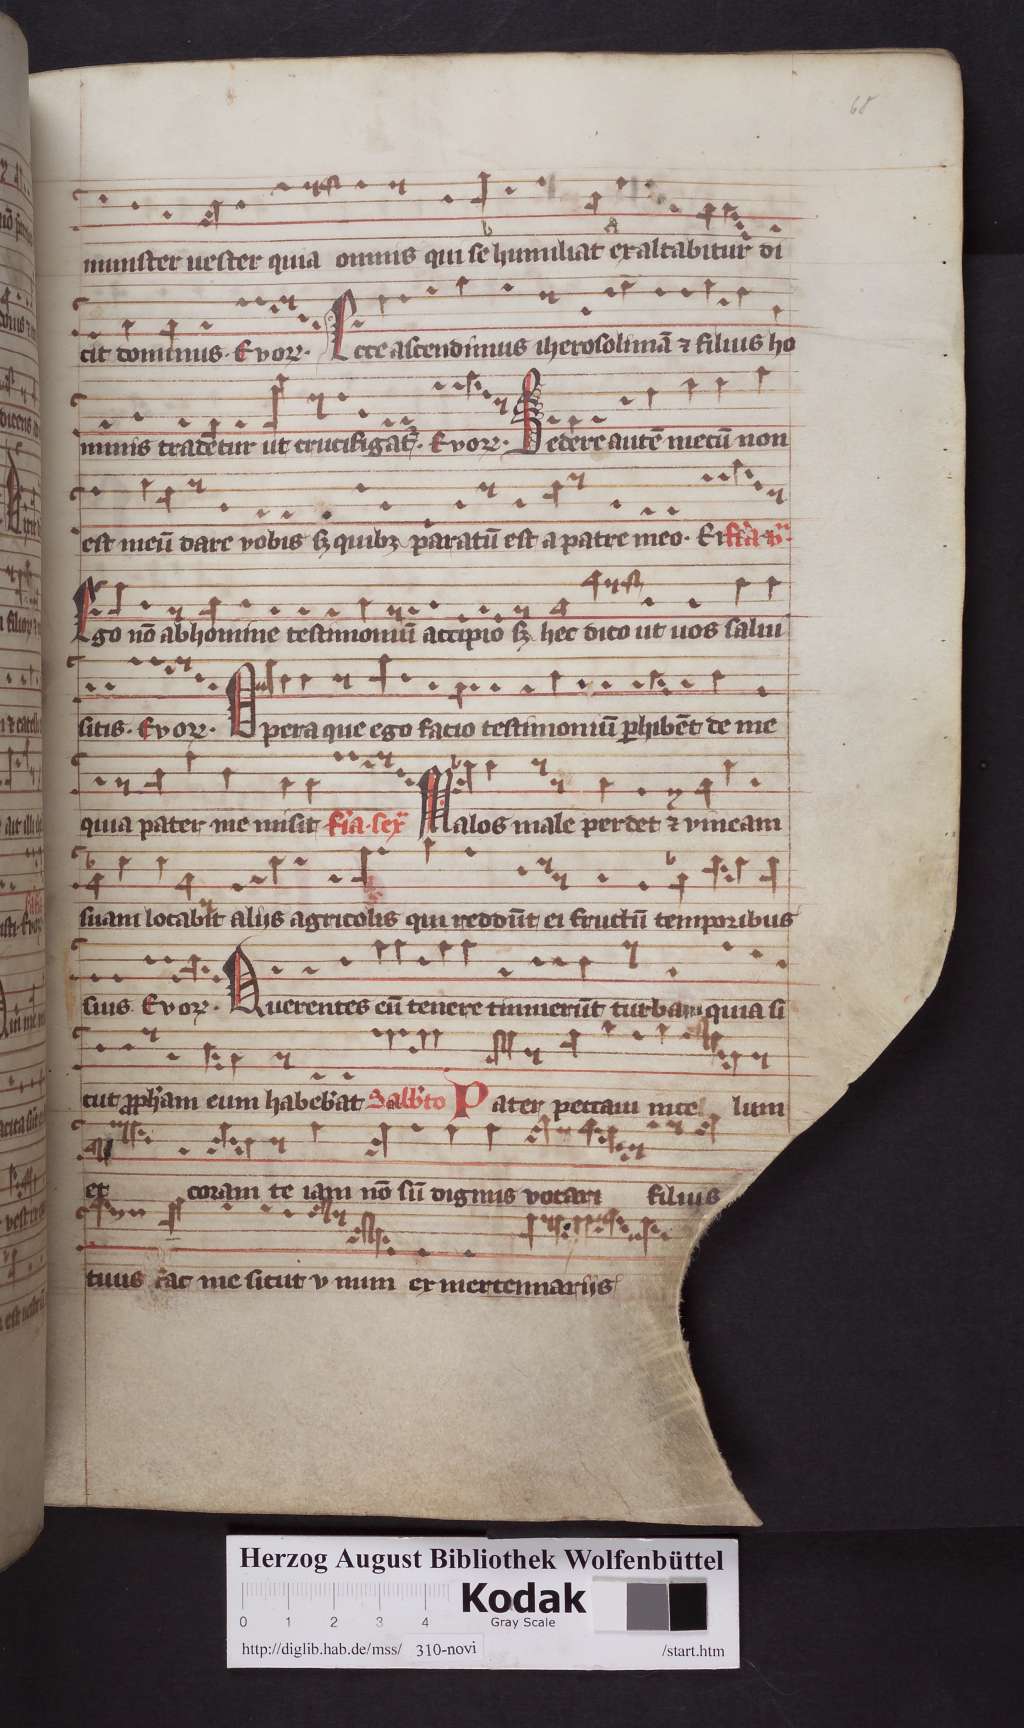 68
minister uester quia omnis qui se humiliat exaltabitur di
cit dominus. Evovᷓ. Ecce ascendimus iherosolimā ⁊ filius ho
minis tradētur ut crucifigatᷓ. Evovᷓ. Sedere autē mecū non
est meū dare vobis sꝫ quibꝫ paratū est a patre meo. Ev fr̄a v.
Ego nō ab homine testimoniū accipio sꝫ hec dico ut uos salui
sitis. Evovᷓ. Opera que ego facio testimoniū ꝑhibēt de me
quia pater me misit fr̄ia. sex᷑ Malos male perdet ⁊ vineam
suam locabit alijs agricolis qui reddūt ei fructū temporibus
suis Evovᷓ. Querentes eū tenere timuerūt turbam quia si
cut ꝓph̄am eum habeb̄at Sabb̄to Pater peccaui in ce lum
et coram te iam nō sū dignus vocari filius
tuus fac me sicut v num ex mercennarijs
Herzog August Bibliothek Wolfenbüttel
0 1 2 3 4 Kodak
Gray Scale
http://diglib.hab.de/mss/ 310-novi /start.htm